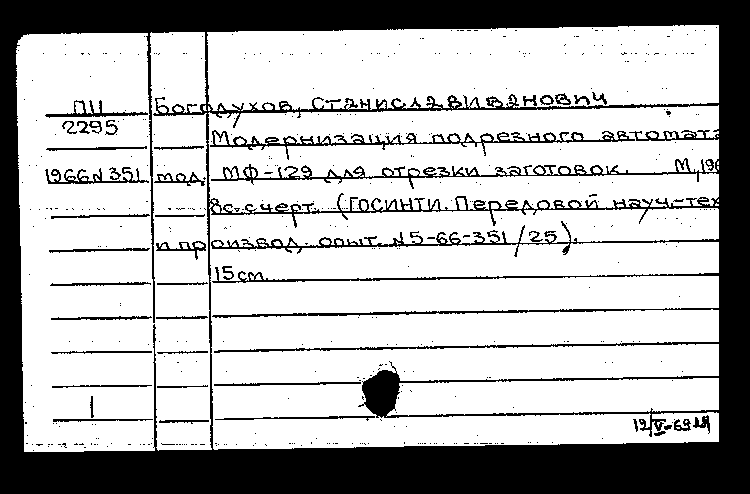 ПИ Богодухов, Станислав Иванович
2295 Модернизация подрезного автомата
1966 N 351 мод. МФ-129 для отрезки заготовок. М, 196
8с. с черт. (ГОСИНТИ. Передовой науч.-тех
и производ. опыт. N 5-66-351/25).
15 см.
1